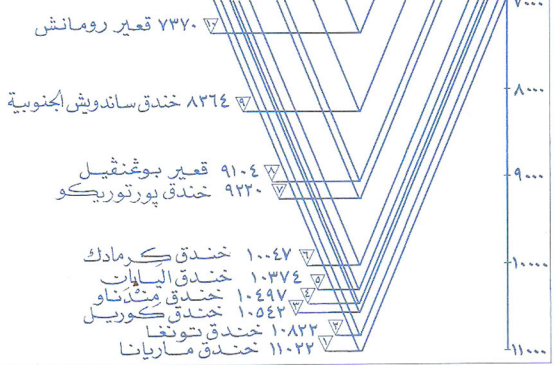 ٧٠٠٠
١٠ ٧٣٧٠ قعير رومانش
٨٠٠٠
٩ ٨٢٦٤ خندق ساندويش الجنوبية
٨ ٩١٠٤ قعير بوغنڤيل
٩٠٠٠
٧ ٩٢٢٠ خندق پورتوريكو
٦ ١٠٠٤٧ خندق كرمادك
١٠٠٠٠
٥ ١٠٣٧٤ خندق اليابان
٤ ١٠٤٩٧ خندق مِنْدَناو
٣ ١٠٥٤٢ خندق كوريل
٢ ١٠٨٢٢ خندق تونغا
١ ١١٠٢٢ خندق ماريانا
١١٠٠٠